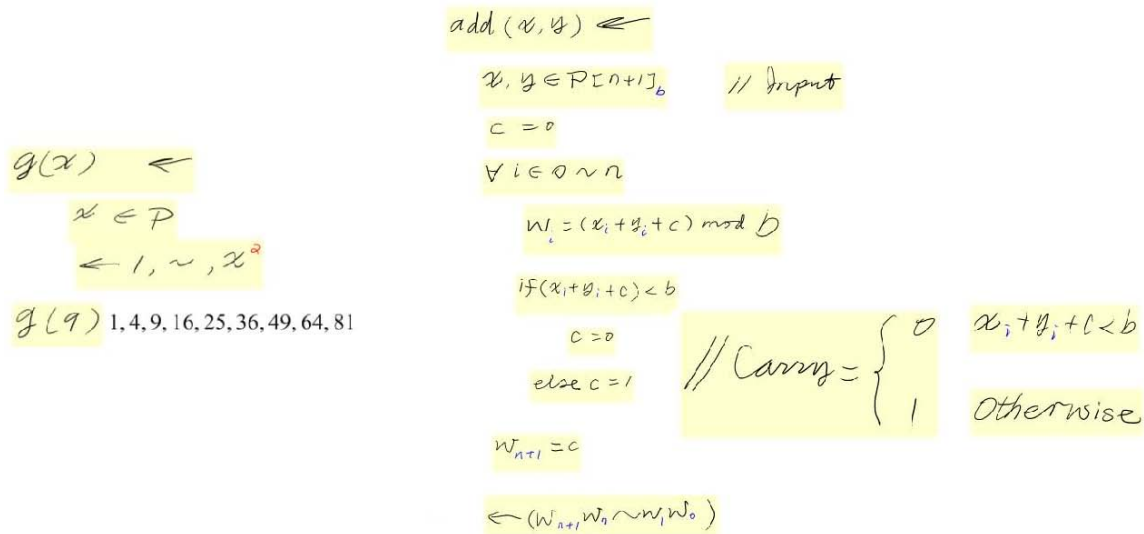 g(x) ←
x ∈ P
← 1, ~, x²
g(9) 1, 4, 9, 16, 25, 36, 49, 64, 81
add(x, y) ←
x, y ∈ P[n+1]_b // Input
c = 0
∀ i ∈ 0 ~ n
w_i = (x_i + y_i + c) mod b
if (x_i + y_i + c) < b
c = 0
else c = 1
// Carry = { 0 x_i + y_i + c < b
1 Otherwise
w_{n+1} = c
← (w_{n+1} w_n ~ w_1 w_0)